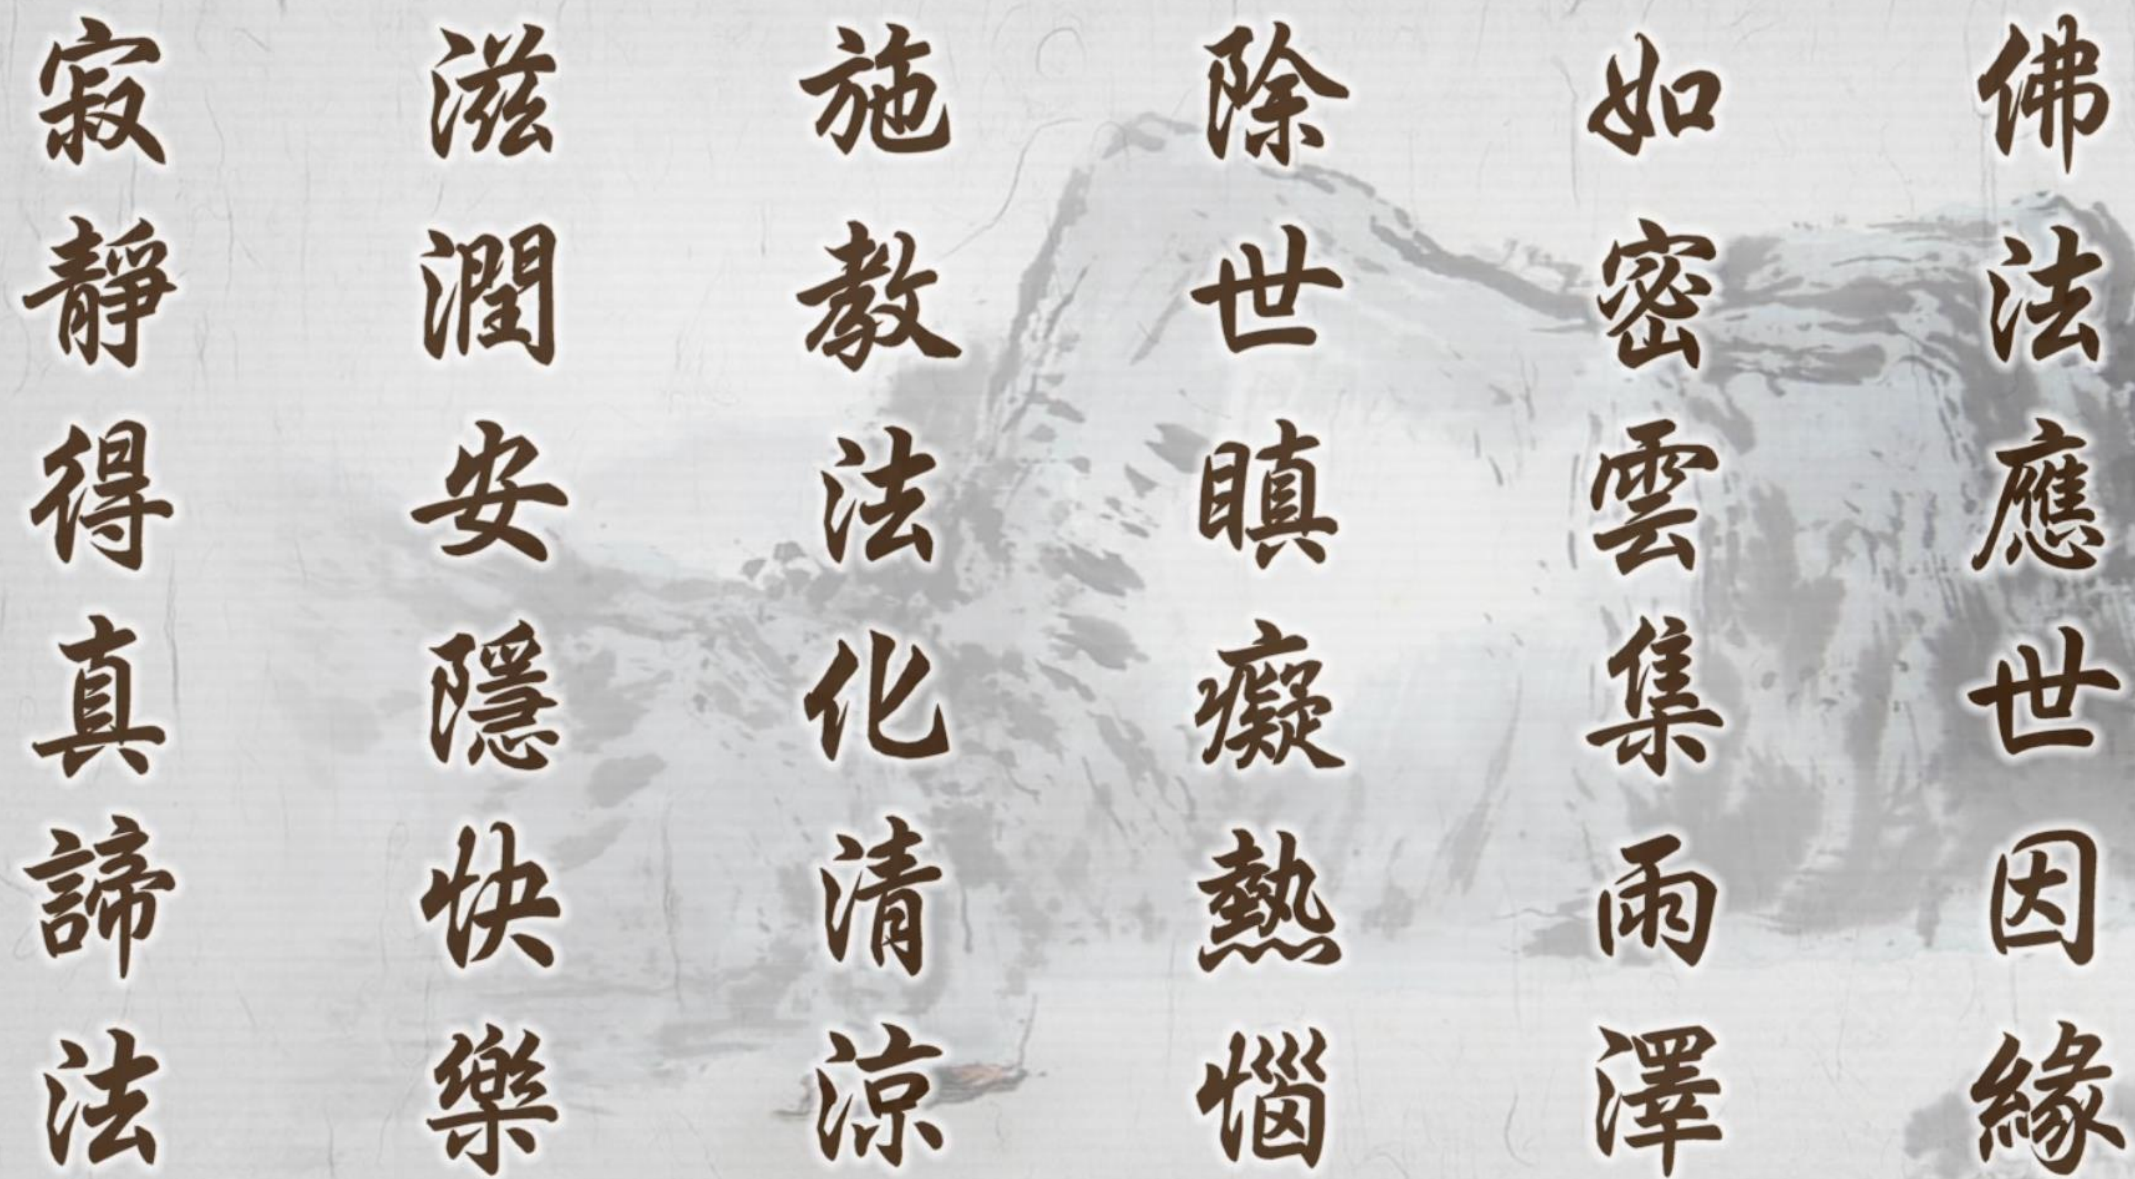 佛法應世因緣
如密雲集雨澤
除世瞋癡熱惱
施教法化清涼
滋潤安隱快樂
寂靜得真諦法